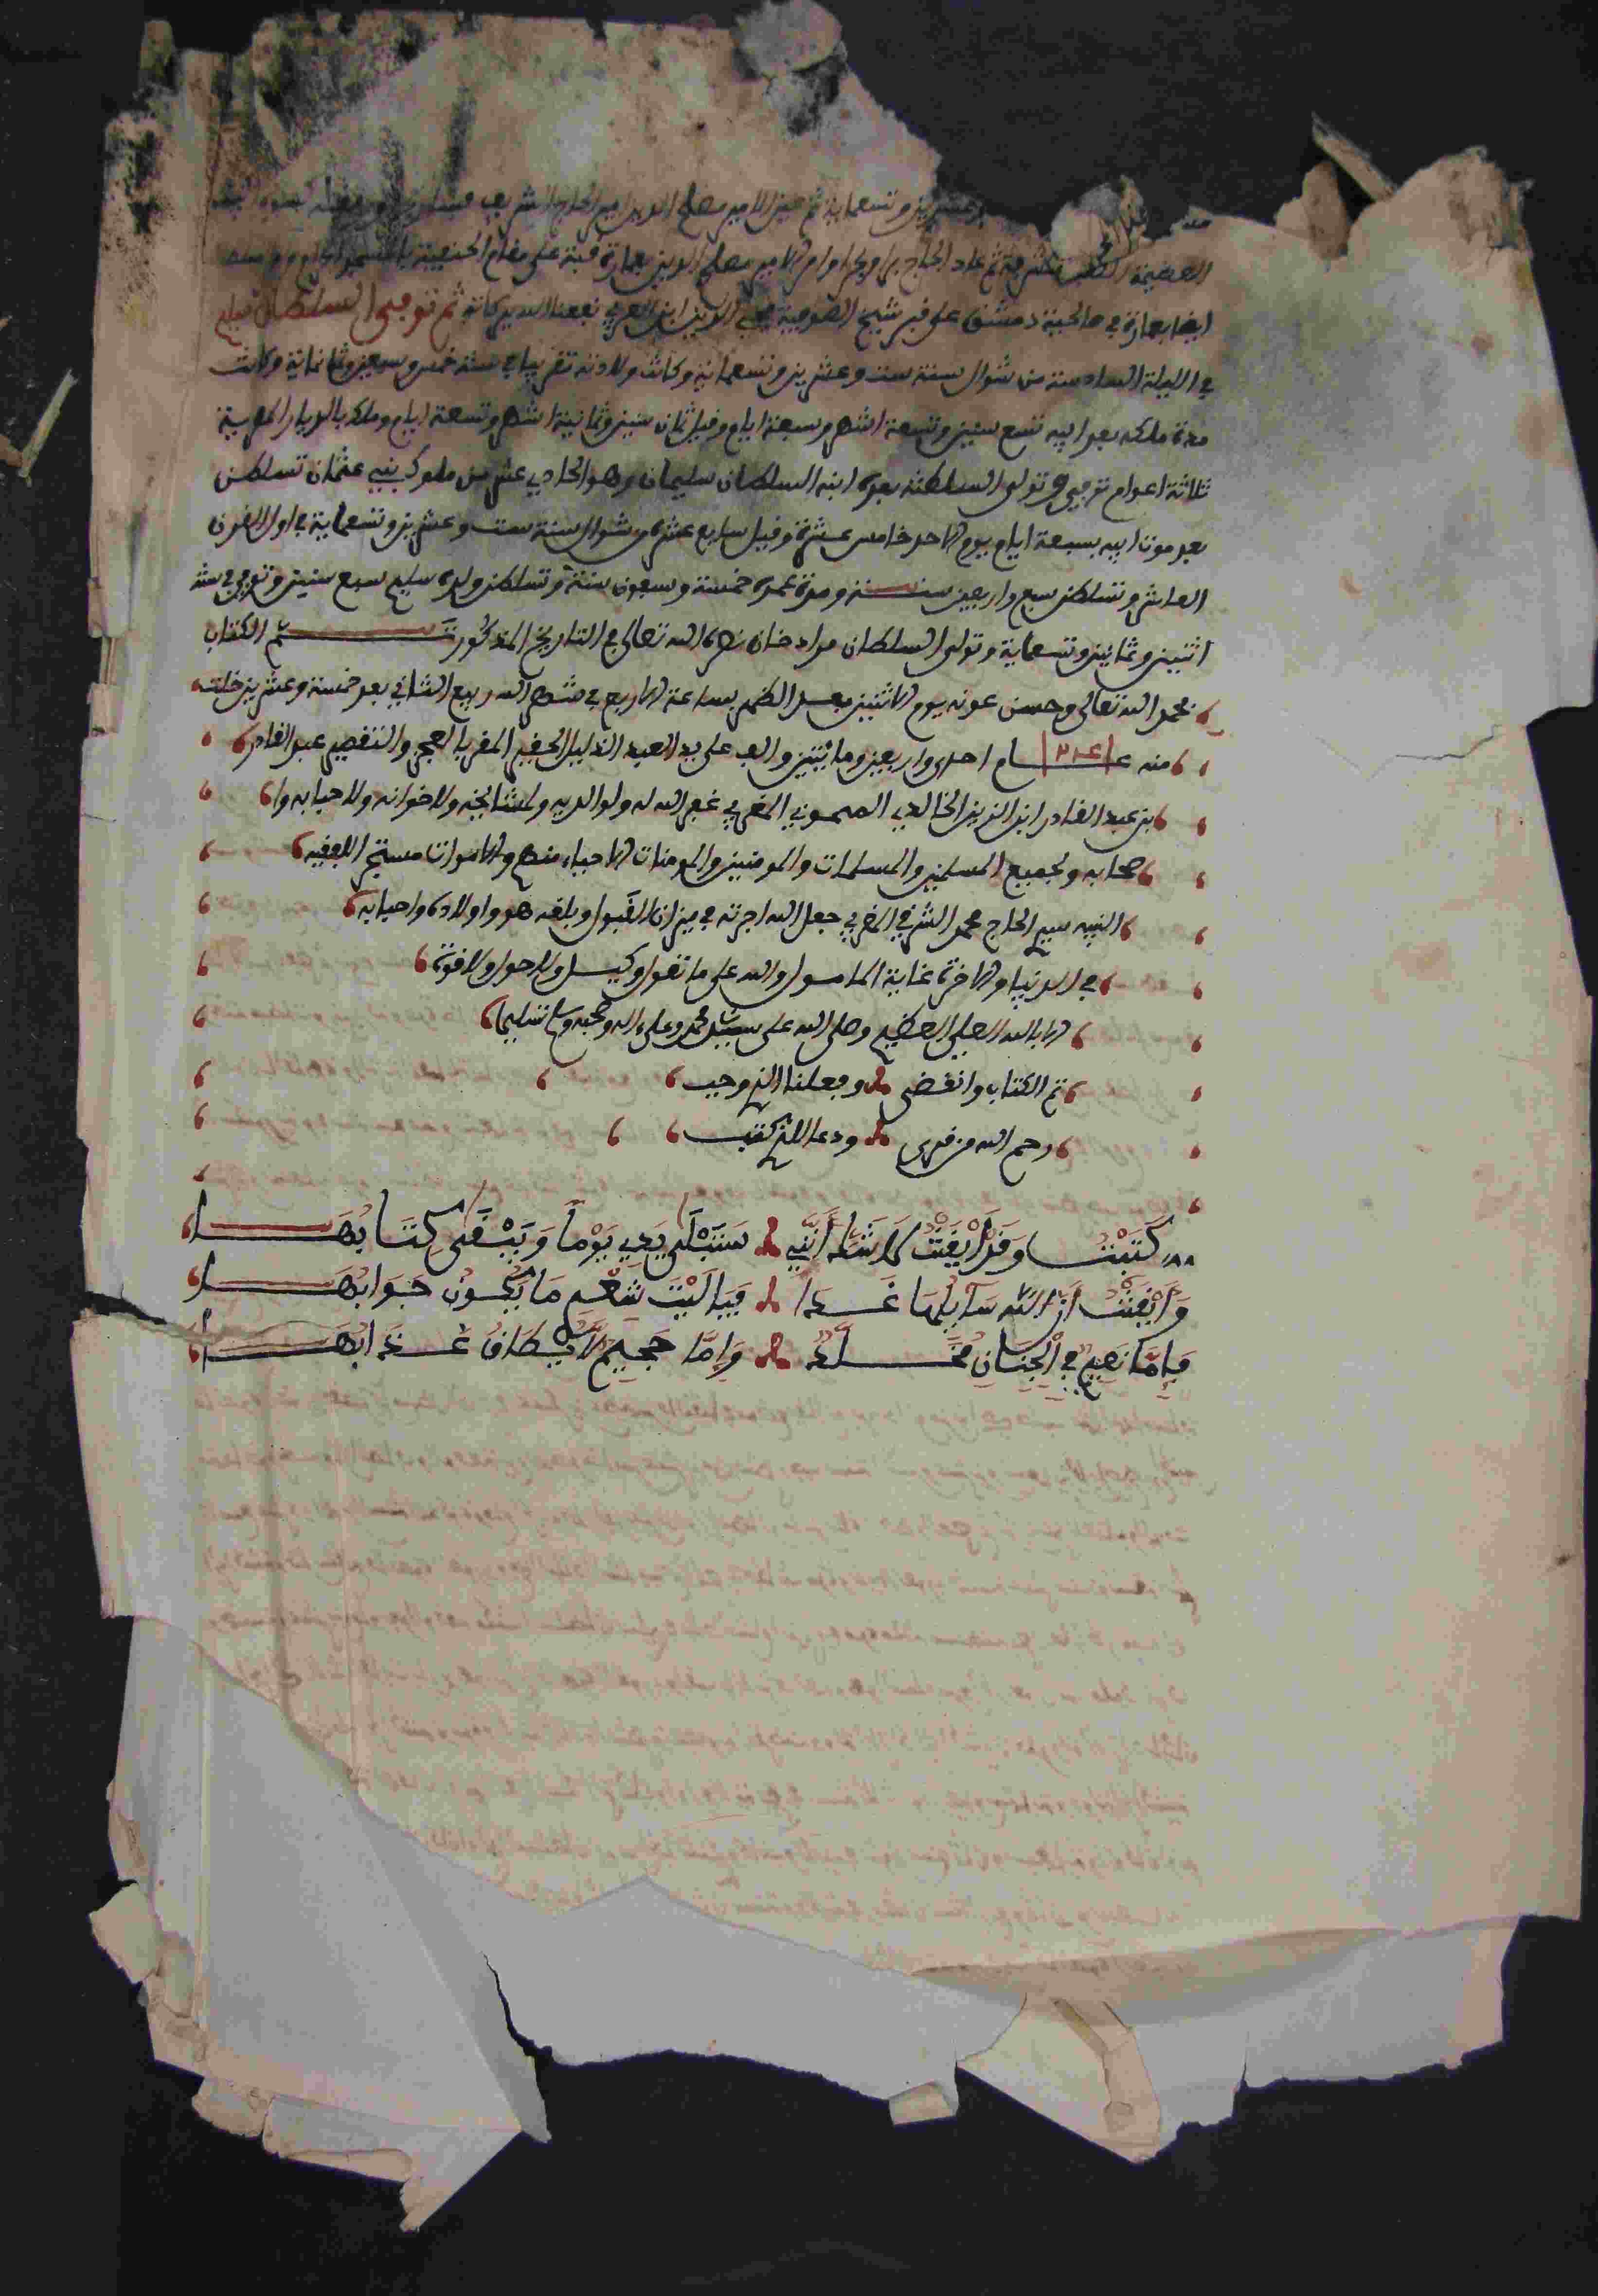 وعشرين وتسعماية ثم عين الامير مصلح الدين امير الحاج الشريف
ثم عاد الحاج امر الامير مصلح الدين بعمارة قبة على مقام الحنفية بالمسجد الحرام
ايضا بعمارة في صالحية دمشق على قبر شيخ الصوفية محيي الدين ابن العربي نفعنا الله ببركاته ثم توفى السلطان سليم
في الليلة السادسة من شوال سنة ست وعشرين وتسعماية وكانت ولادته تقريبا في سنة خمس وسبعين وثمانماية وكانت
مدة ملكه بعد ابيه تسع سنين وتسعة اشهر وسبعة ايام وقيل ثمان سنين وثمانية اشهر وتسعة ايام وملك بالديار المصرية
ثلاثة اعوام توفي وتولى السلطنة بعده ابنه السلطان سليمان وهو الحادي عشر من ملوك بني عثمان تسلطن
بعد موت ابيه بسبعة ايام يوم الاحد خامس عشرة وقيل سابع عشرة من شوال سنة ست وعشرين وتسعماية في اول القرن
العاشر وتسلطن سبع واربعين سنة ومدة عمره خمسة وسبعون سنة وتسلطن ولده سليم سبع سنين وتوفي في سنة
اثنين وثمانين وتسعماية وتولى السلطان مراد خان نصره الله تعالى في التاريخ المذكور تم الكتاب
بحمد الله تعالى وحسن عونه يوم الاثنين بعد الظهر بساعة الاربع في شهر الله ربيع الثاني بعد خمسة وعشرين خلت
منه عام ١٢٤١ احدى واربعين ومايتين والف على يد العبد الذليل الحقير المقر بالعجز والتقصير عبد القادر
بن عبد القادر ابن الزين الخالدي المغربي غفر الله له ولوالديه ولمشايخه ولاخوانه ولاحبابه وا
صحابه ولجميع المسلمين والمسلمات والمومنين والمومنات الاحياء منهم والاموات
النبيه سيد الحاج محمد الشرفي المغربي جعل الله اجرته في ميزان القبول وبلغه هو واولاده واحبابه
في الدنيا والاخرة غاية المامول والله على ما نقول وكيل ولا حول ولا قوة
الا بالله العلي العظيم وصلى الله على سيدنا محمد وعلى ءاله وصحبه وسلم تسليما
تم الكتاب وانقضى وفعلنا الذي وجب
رحم الله من قرى ودعا للذي كتب
كَتَبْتُ وَقَدْ أَيْقَنْتُ لَا شَكَّ أَنَّنِي سَتَبْلَى يَدِي يَوْماً وَيَبْقَى كِتَابُهَا
وَأَيْقَنْتُ أَنَّ اللَّهَ سَآئِلُهَا غَداً فَيَا لَيْتَ شِعْرِي مَا يَكُونُ جَوَابُهَا
فَإِمَّا نَعِيمٌ فِي الْجِنَانِ مُخَلَّدٌ وَإِمَّا جَحِيمٌ لَا يُطَاقُ عَذَابُهَا